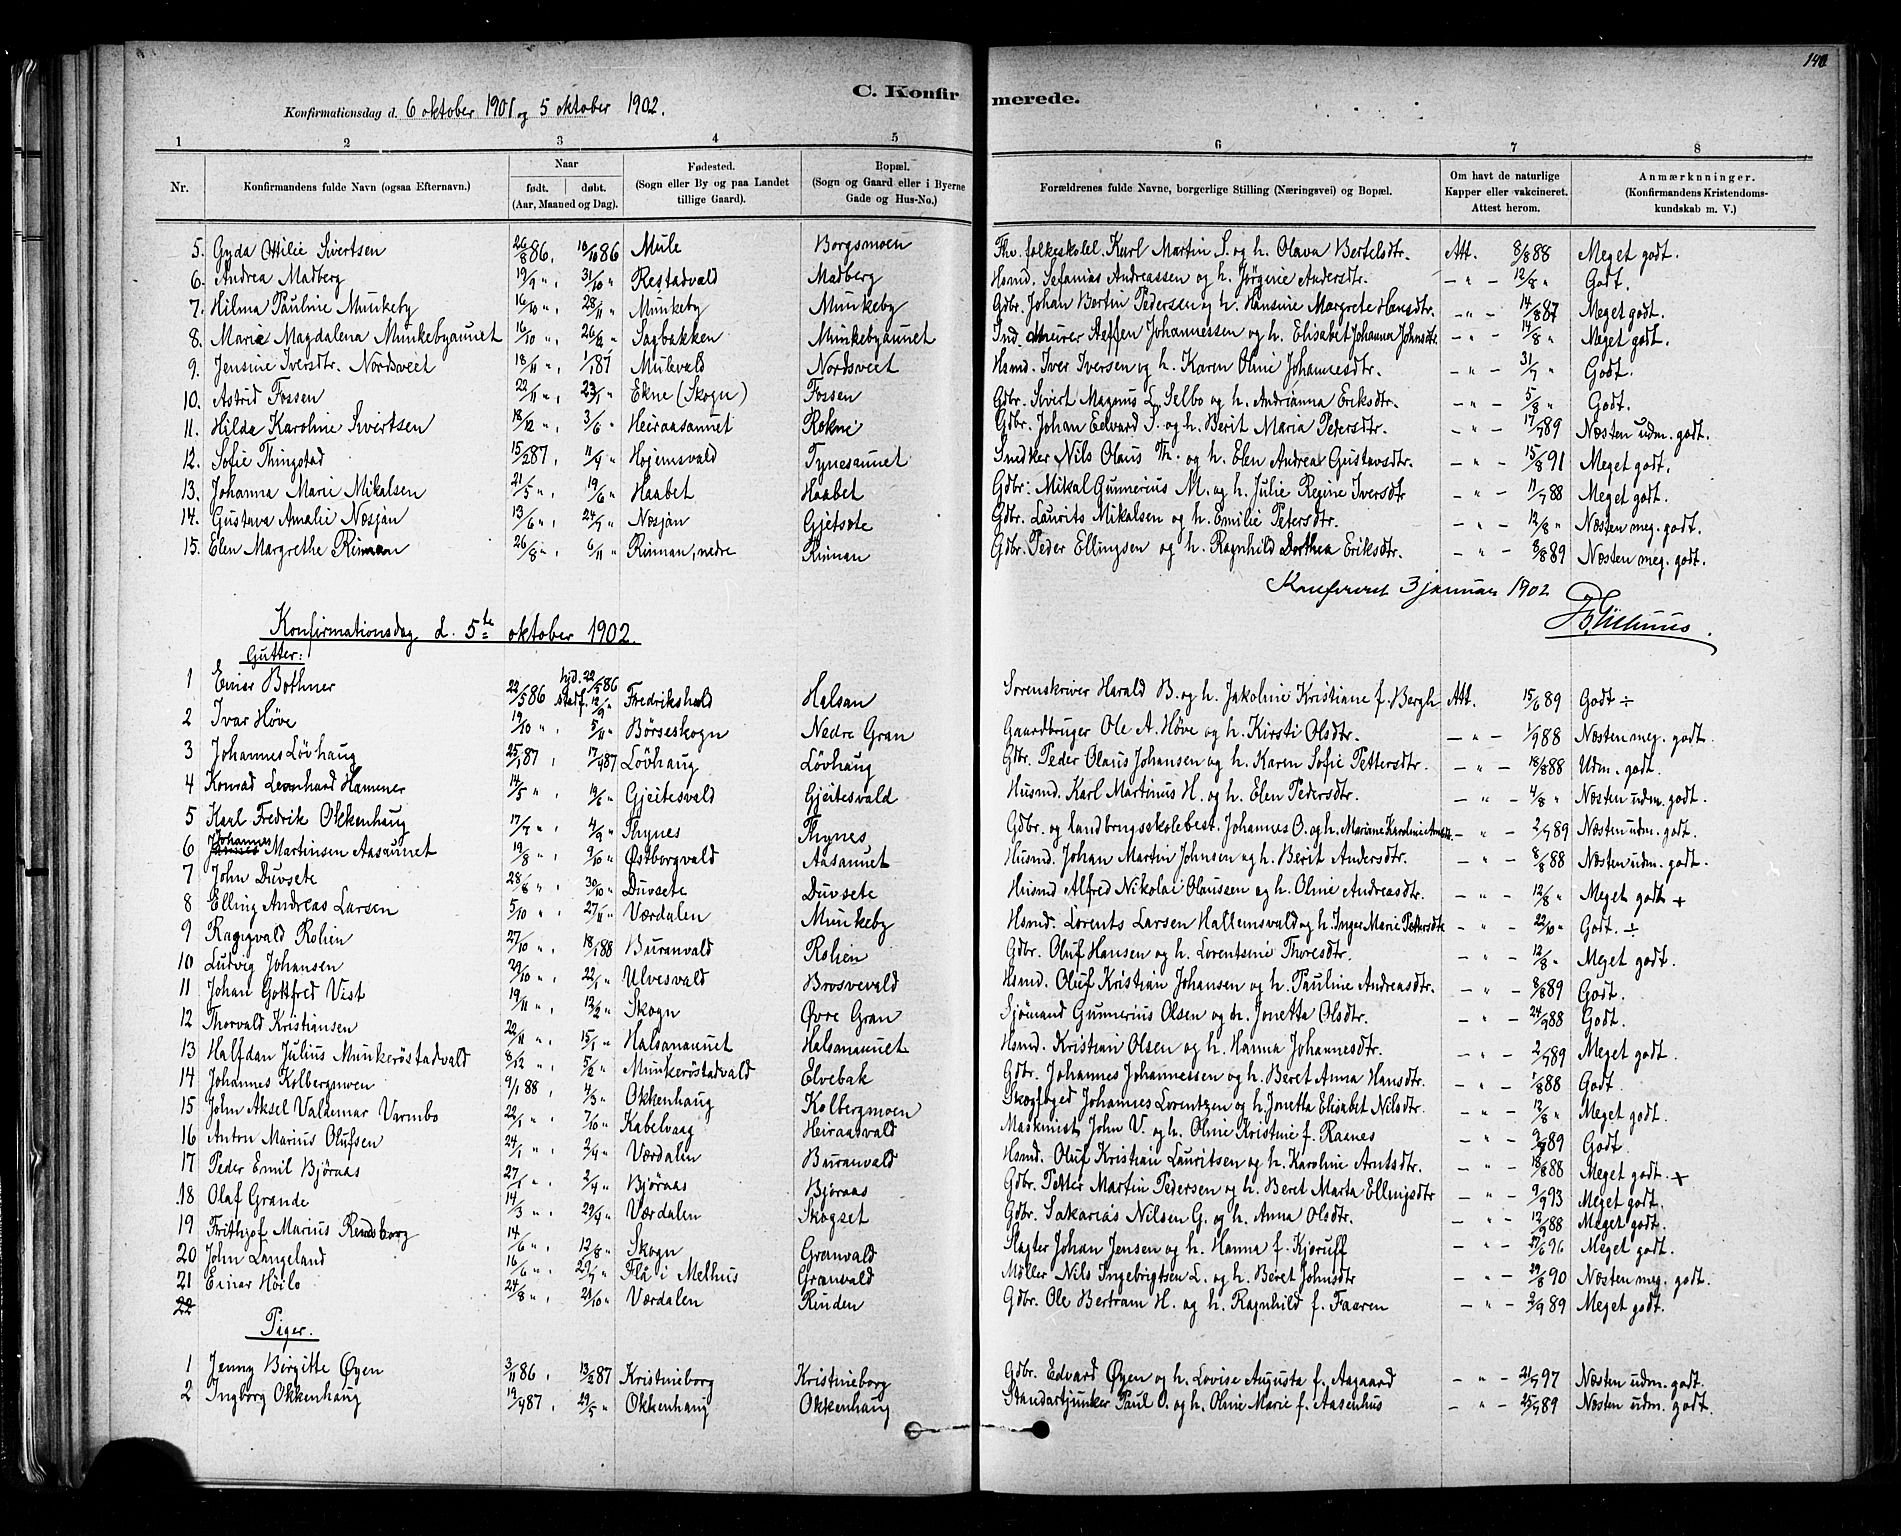 140
C. Konfirmerede.
Konfirmationsdag d. 6 oktober 1901 og 5 oktober 1902.
1 2 3 4 5 6 7 8
Nr. Konfirmandens fulde Navn (ogsaa Efternavn). Naar født. døbt. (Aar, Maaned og Dag). Fødested. (Sogn eller By og paa Landet tillige Gaard). Bopæl. (Sogn og Gaard eller i Byerne Gade og Hus-No.) Forældrenes fulde Navne, borgerlige Stilling (Næringsvei) og Bopæl. Om havt de naturlige Kapper eller vakcineret. Attest herom. Anmærkninger. (Konfirmandens Kristendomskundskab m. V.)
5. Gyda Otilie Sivertsen 26/8 86, 10/10 86 Mule Borgsmoen Fhv. folkeskolel. Karl Martin S. og h. Olava Bertelsdtr. Att. 8/8 88 Meget godt.
6. Andrea Madberg 19/9 " , 31/10 " Restadvald Madberg Hsmd. Sefanias Andreassen og h. Jørgine Andersdtr. — " — 12/8 " Godt.
7. Hilma Pauline Munkeby 16/10 " , 28/11 " Munkeby Munkeby Gdbr. Johan Bertin Pedersen og h. Hansine Margrete Hansdtr. — " — 14/8 87 Meget godt.
8. Marie Magdalena Munkebyaunet 16/10 " , 26/12 " Sagbakken Munkebyaunet Ind. Murer Steffen Johannessen og h. Elisabet Johanna Johnsdtr. — " — 14/8 " Meget godt.
9. Jensine Iversdtr. Nordsveet 18/11 " , 1/1 87 Mulevald Nordsveet Hsmd. Iver Iversen og h. Karen Oline Johannesdtr. — " — 31/7 " Godt.
10. Astrid Fossen 22/11 " , 23/1 " Ekne (Skogn) Fossen Gdbr. Sivert Magnus L. Selbo og h. Andrianna Eriksdtr. — " — 5/8 " Godt.
11. Hilda Karoline Sivertsen 18/12 " , 3/6 " Heiraasaunet Røkne Gdbr. Johan Edvard S. og h. Berit Maria Petersdtr. — " — 17/7 89 Næsten udm. godt.
12. Sofie Thingstad 15/2 87, 11/4 " Højemsvald Tynesaunet Snedker Nils Olaus Th. og h. Elen Andrea Gustavsdtr. — " — 15/8 91 Meget godt.
13. Johanna Marie Mikalsen 21/5 " , 19/6 " Haabet Haabet Gdbr. Mikal Gunnerius M. og h. Julie Regine Iversdtr — " — 11/7 88 Meget godt.
14. Gustava Amalie Nøsjan 13/6 " , 24/7 " Nøsjan Gjetsøte Gdbr. Laurits Mikalsen og h. Emilie Petersdtr. — " — 12/8 " Næsten meg. godt.
15. Elen Margrethe Riman 26/8 " , 6/11 " Riman, nedre Riman Gdbr. Peder Ellingsen og h. Ragnhild Dorthea Eriksdtr. — " — 8/8 89 Næsten meg. godt.
Konfereret 3 januar 1902
Konfirmationsdag d. 5te oktober 1902.
Gutter:
1 Einar Bothner 22/5 86 hjd. 22/5 86 stadf. 12/9 " Fredrikshald Halsan Sorenskriver Harald B. og h. Jakoline Kristiane f. Bergh Att. 15/6 89 Godt ÷
2 Ivar Høve 19/10 " , 5/11 " Børseskogn Nedre Gran Gaardbruger Ole A. Høve og h. Kirsti Olsdtr. — " — 1/9 88 Næsten meg. godt.
3 Johannes Løvhaug 25/1 87 , 17/4 87 Løvhaug Løvhaug Gdbr. Peder Olaus Johansen og h. Karen Sofie Pettersdtr. — " — 18/8 88 Udm. godt.
4 Konrad Leonhard Hammer 14/5 " , 19/6 " Gjeitesvald Gjeitesvald Husmd. Karl Martinus H. og h. Elen Pedersdtr. — " — 4/8 " Næsten udm. godt.
5 Karl Fredrik Okkenhaug 17/7 " , 4/9 " Thynes Thynes Gdbr. og landbrugsskolebest. Johannes O. og h. Mariane Karoline — " — 2/7 89 Næsten udm. godt.
6 Johannes Martinsen Aasaunet 19/8 " , 9/10 " Østborgvald Aasaunet Husmd. Johan Martin Johnsen og h. Berit Andersdtr. — " — 8/8 88 Næsten udm. godt.
7 John Duvsete 28/8 " , 30/10 " Duvsete Duvsete Husmd Alfred Nikolai Olaussen og h. Oline Andreasdtr. — " — 12/8 " Meget godt +
8 Elling Andreas Larsen 5/10 " , 27/11 " Værdalen Munkeby Hsmd. Lorents Larsen Hallemsvald og h. Inger Marie Pettersdtr — " — 22/10 " Godt. ÷
9 Ragnvald Rohen 27/10 " , 18/1 88 Buranvald Rohen Gdbr. Oluf Hansen og h. Lorentsine Thoresdtr. — " — 12/8 " Meget godt.
10 Ludvig Johansen 29/10 " , 22/1 " Ulvesvald Brosvevald Hsmd. Oluf Kristian Johansen og h. Pauline Andreasdtr. — " — 8/8 89 Godt.
11 Johan Gottfred Vist 19/11 " , 12/2 " Skogn Øvre Gran Sjømand Gunnerius Olsen og h. Jonetta Olsdtr. — " — 24/9 88 Godt.
12 Thorvald Kristiansen 22/11 " , 15/1 " Halsanaunet Halsanaunet Hsmd. Kristian Olsen og h. Hanna Johannesdtr. — " — 2/7 89 Meget godt.
13 Halfdan Julius Munkerøstadvald 8/12 " , 5/2 " Munkerøstadvald Elvebak Gdbr. Johannes Johannessen og h. Beret Anna Hansdtr. — " — 1/8 88 Godt.
14 Johannes Kolbergmoen 9/1 88 , 4/3 " Okkenhaug Kolbergmoen Skogfoged Johannes Lorentzen og h. Jonetta Elisabet Nilsdtr. — " — 12/8 " Meget godt.
15 John Aksel Valdemar Varmbo 22/1 " , 7/10 " Kabelvaag Heiraasvald Maskinist John V. og h. Oline Kristine f. Raanes — " — 9/7 89 Godt.
16 Anton Marius Olufsen 24/1 " , 2/4 " Værdalen Buranvald Hsmd. Oluf Kristian Lauritsen og h. Karoline Arntsdtr. — " — 18/8 88 Meget godt. +
17 Peder Emil Bjøraas 27/1 " , 2/4 " Bjøraas Bjøraas Gdbr. Petter Martin Pedersen og h. Beret Marta Ellingsdtr — " — 9/9 93 Meget godt.
18 Olaf Grande 14/3 " , 29/4 " Værdalen Skogset Gdbr. Sakarias Nilsen G. og h. Anna Olsdtr. — " — 12/9 88 Meget godt.
19 Frithjof Marius Rendborg 14/6 " , 12/8 " Skogn Granvald Slagter Johan Jensen og h. Hanna f. Kjøruff — " — 27/6 96 Meget godt.
20 John Langeland 16/6 " , 29/7 " Flå i Melhus Granvald Møller Nils Ingebrigtsen L. og h. Beret Johnsdtr — " — 29/8 90 Næsten meg. godt.
21 Einar Høilo 24/8 " , 21/10 " Værdalen Rinden Gdbr. Ole Bertram H. og h. Ragnhild f. Faaren — " — 2/9 89 Meget godt.
22
Piger.
1 Jenny Birgitte Øyen 3/11 86 , 13/2 87 Kristineborg Kristineborg Gdbr. Edvard Øyen og h. Lovise Augusta f. Aagaard — " — 21/7 97 Næsten udm. godt.
2 Ingborg Okkenhaug 19/4 87 , 29/5 " Okkenhaug Okkenhaug Standartjunker Paul O. og h. Oline Marie f. Aasenhus — " — 25/7 89 Næsten udm. godt.